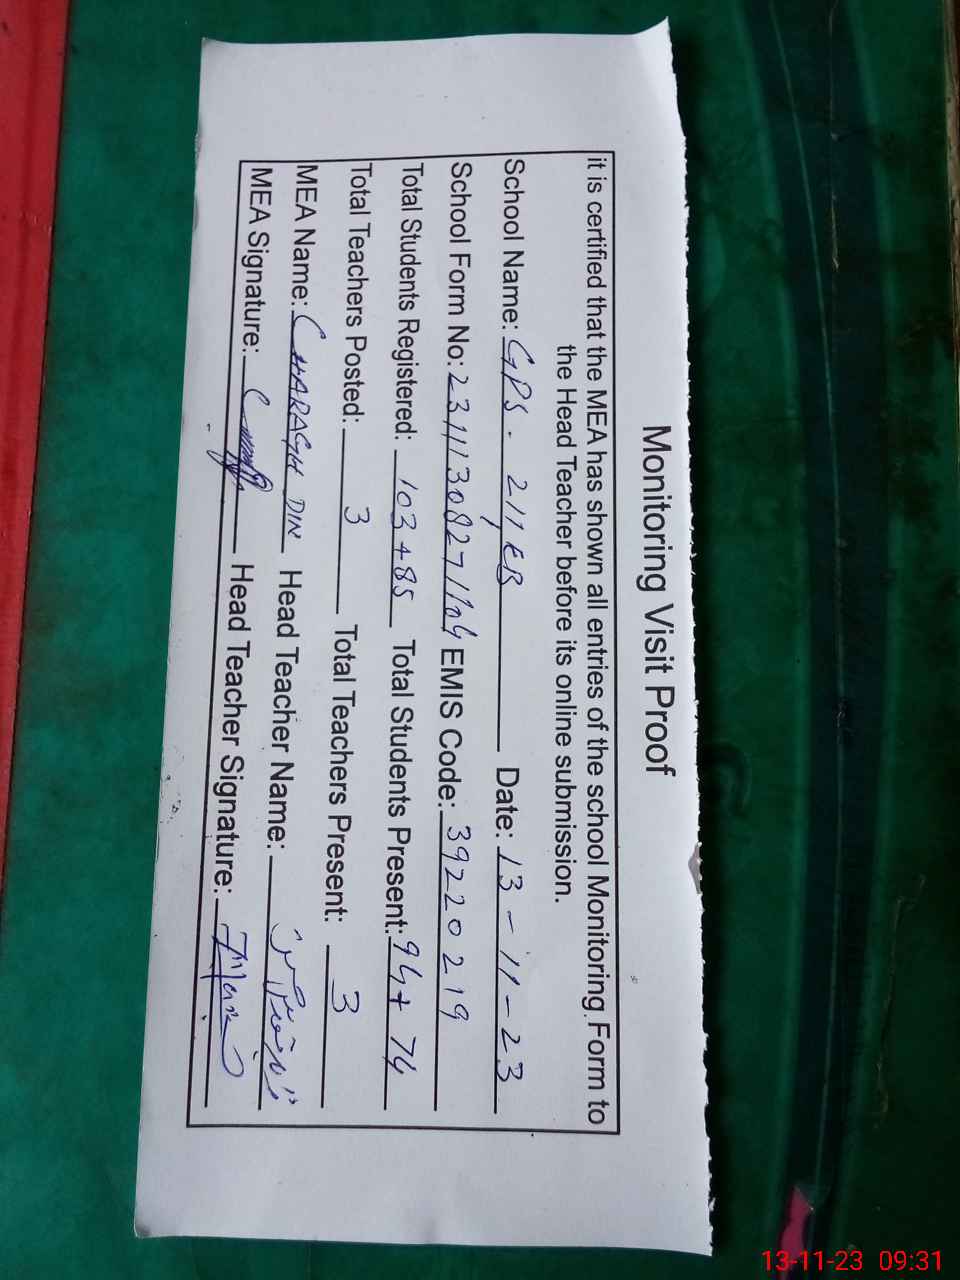 Monitoring Visit Proof
it is certified that the MEA has shown all entries of the school Monitoring Form to
the Head Teacher before its online submission.
School Name: GPS. 211 EB Date: 13-11-23
School Form No: EMIS Code: 39220219
Total Students Registered: 103+85 Total Students Present: 94+74
Total Teachers Posted: 3 Total Teachers Present: 3
MEA Name: CHARAGH DIN Head Teacher Name:
MEA Signature: Head Teacher Signature:
13-11-23 09:31